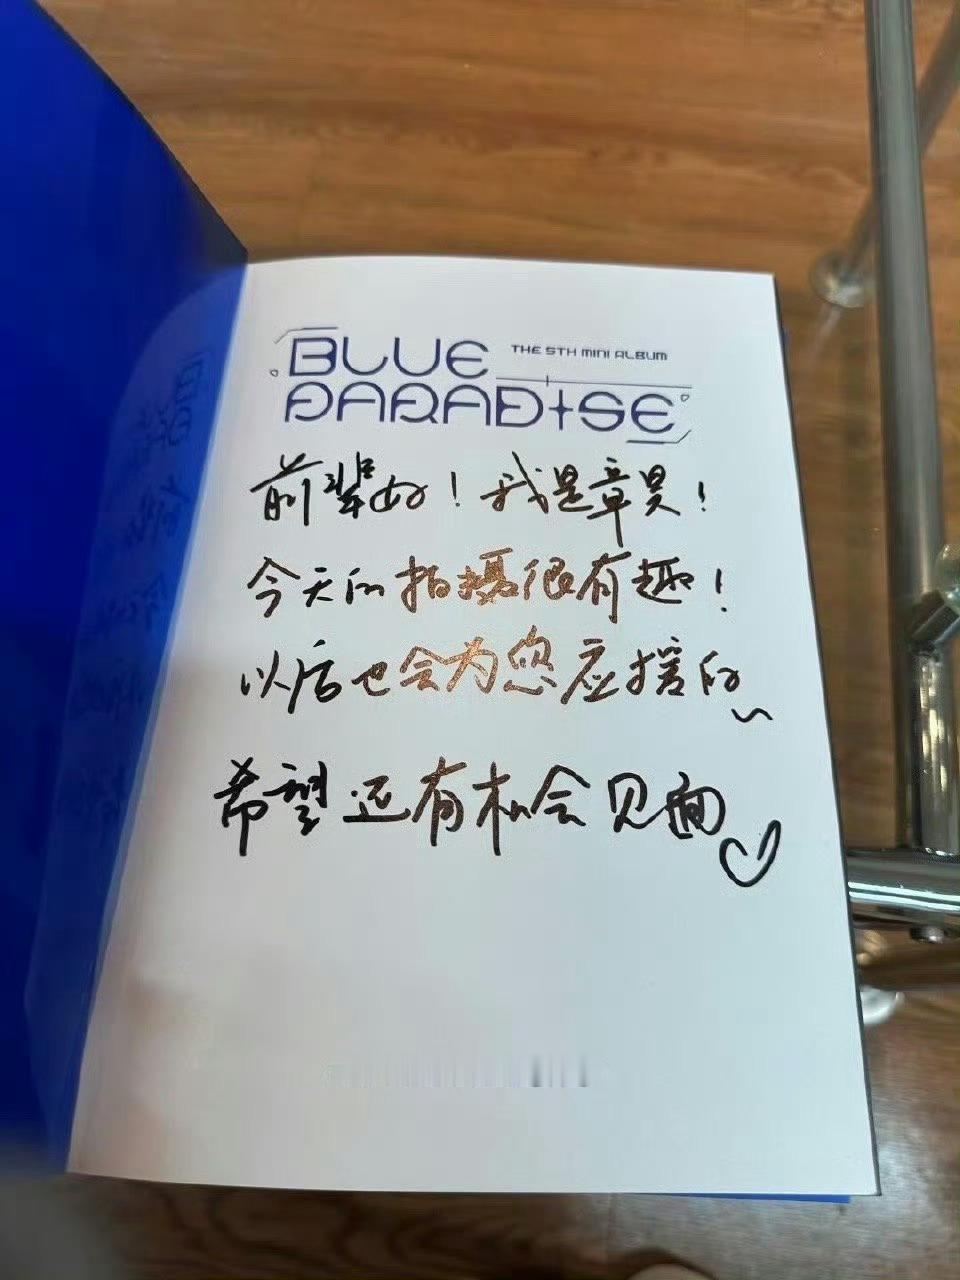 BLUE THE 5TH MINI ALBUM
PARADISE
前辈好！我是章昊！
今天的拍摄很有趣！
以后也会为您应援的~
希望还有机会见面♡